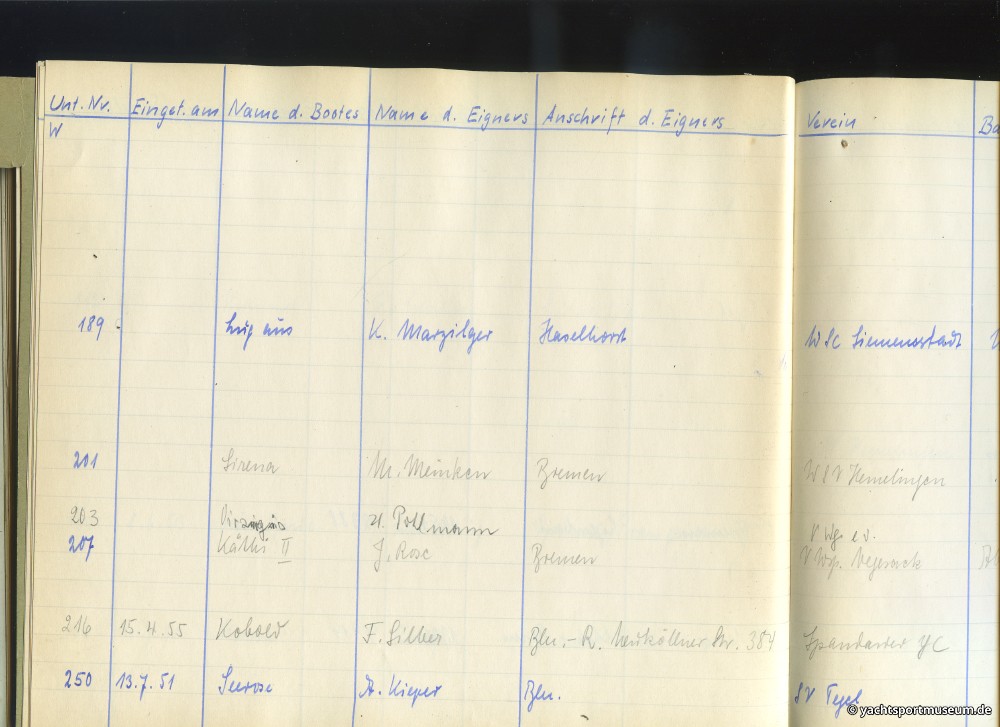 Unt. Nr. Einget. am Name d. Bootes Name d. Eigners Anschrift d. Eigners Verein Ba
W
189 Lug aus K. Marzilger Haselhorst W SC Siemensstadt
201 Sirena M. Meinken Bremen W S V Hemelingen
203 H. Pollmann V Wg. e.V.
207 Käthi II J. Rose Bremen V Wsp. Vegesack
216 15.4.55 Kobold F. Silber Bln.-R. Neuköllner Str. 384 Spandauer YC
250 13.7.51 Seerose A. Kieper Bln. SV Tegel
© yachtsportmuseum.de